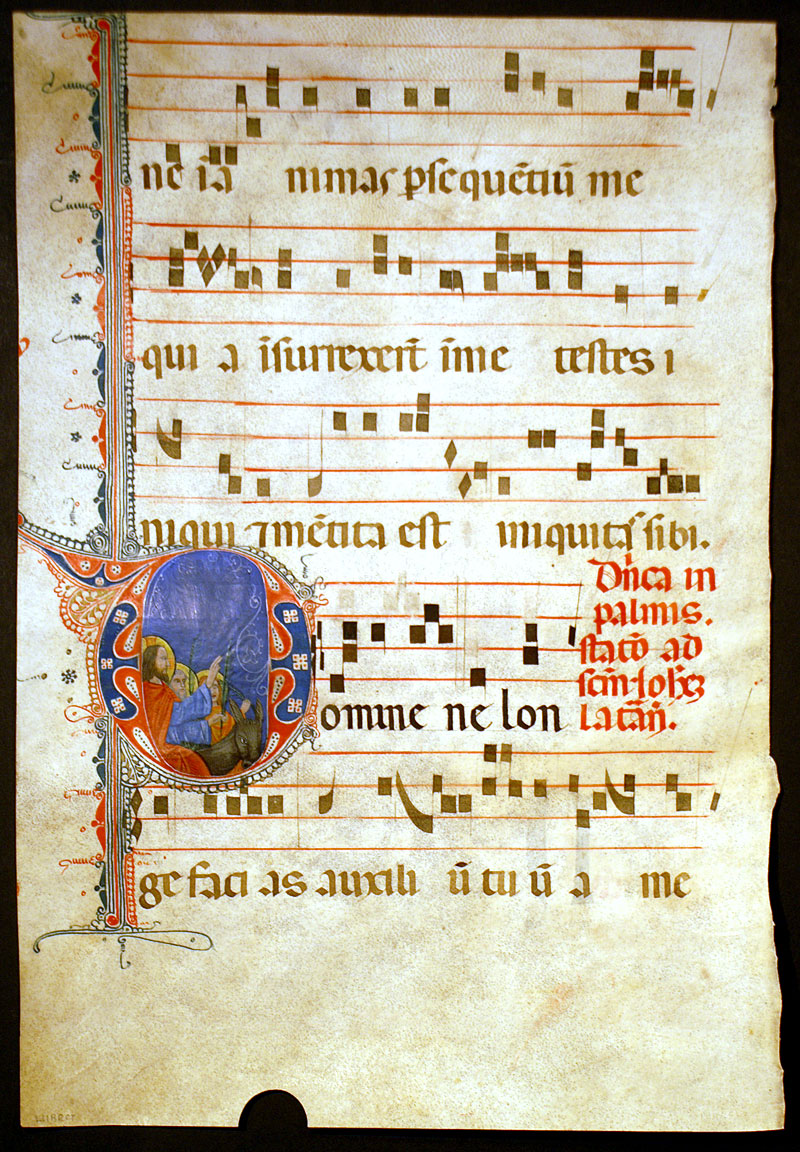 ne ī ā nimas p̱seque͞tiū me
qui a īsurrexert̄ īme testes i
niqui ⁊ me͞tita est iniquitas̄ sibi.
Dn̄ica in
palmis.
statō ad
scm̄ Ioh̄ez
latan̄.
Domine ne lon
ge faci as auxili ū tu ū a me